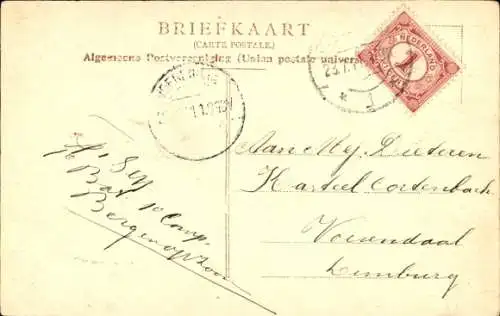 BRIEFKAART
(CARTE POSTALE.)
Algemeene Postvereeniging (Union postale universelle)
NEDERLAND
1
23.7.1
Bat. 1e Comp.
Bergen op Zoom
Aan Mej. Dieteren
Kasteel Cortenbach
Voerendaal
Limburg